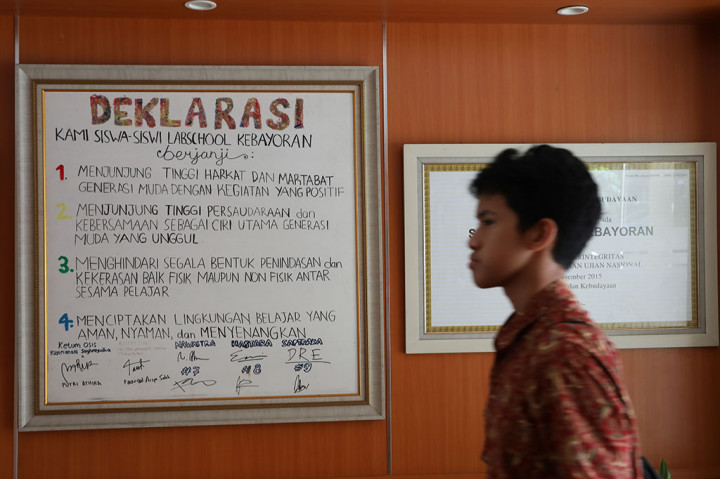 DEKLARASI
KAMI SISWA-SISWI LABSCHOOL KEBAYORAN
berjanji:
1. MENJUNJUNG TINGGI HARKAT DAN MARTABAT
GENERASI MUDA DENGAN KEGIATAN YANG POSITIF
2. MENJUNJUNG TINGGI PERSAUDARAAN dan
KEBERSAMAAN SEBAGAI CIRI UTAMA GENERASI
MUDA YANG UNGGUL
3. MENGHINDARI SEGALA BENTUK PENINDASAN dan
KEKERASAN BAIK FISIK MAUPUN NON FISIK ANTAR
SESAMA PELAJAR
4. MENCIPTAKAN LINGKUNGAN BELAJAR YANG
AMAN, NYAMAN, dan MENYENANGKAN
Ketum OSIS
DRE
#7 #8 #9
UDAYAAN
KEBAYORAN
INTEGRITAS
AN UJIAN NASIONAL
ember 2015
dan Kebudayaan